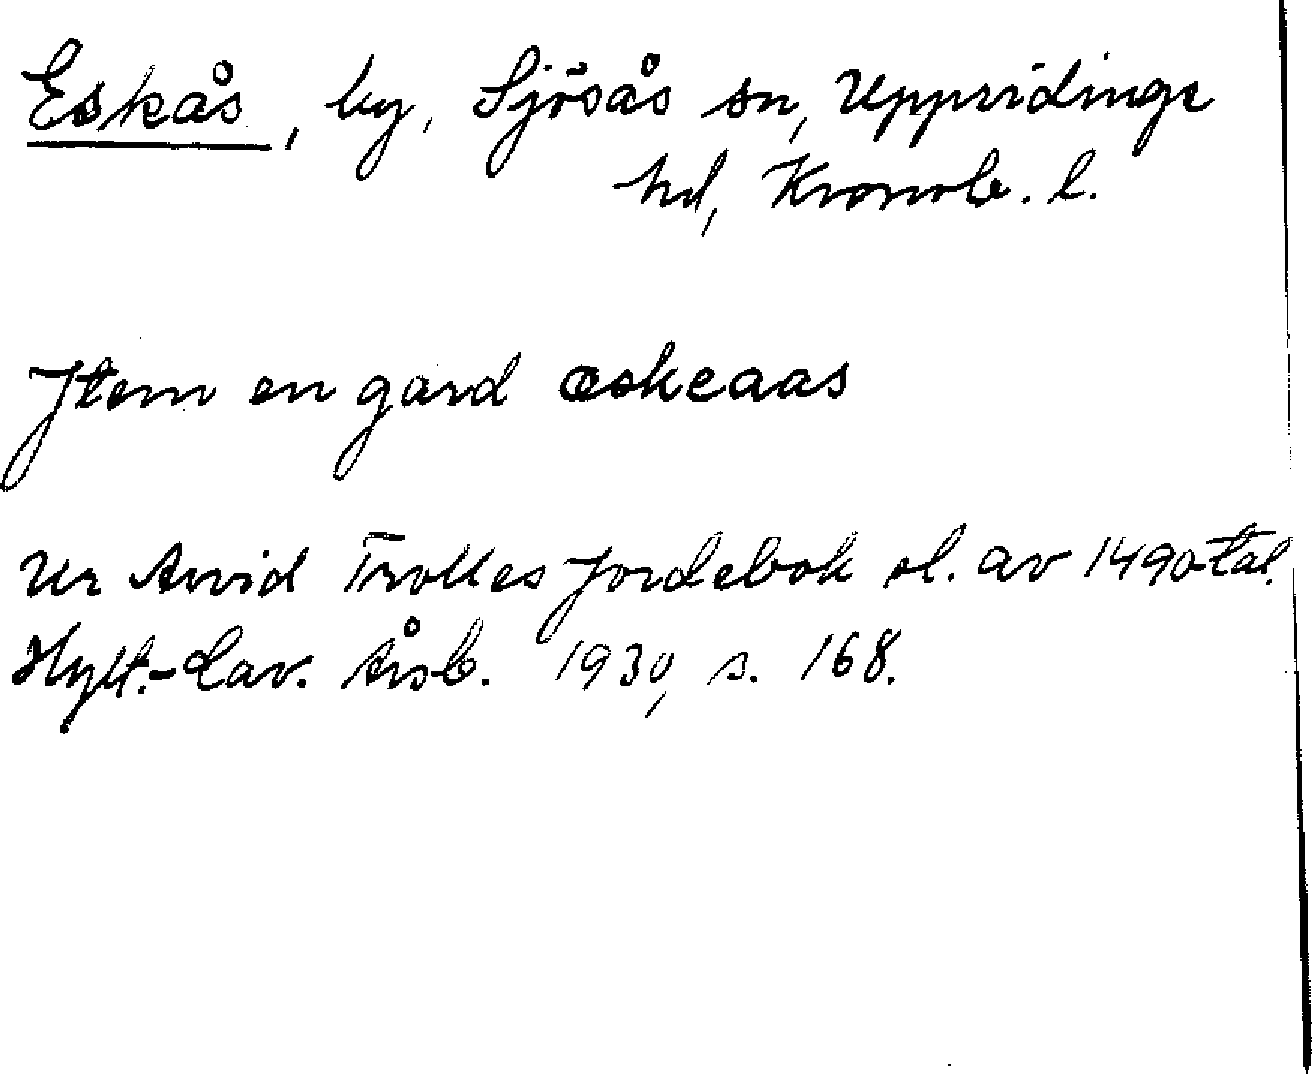 Eskås, by, Sjösås sn, Uppvidinge
hd, Kronob. l.
Item en gard œskeaas
Ur Arvid Trolles Jordebok sl. av 1490-tal.
Hylt.-Cav. Årsb. 1930, s. 168.